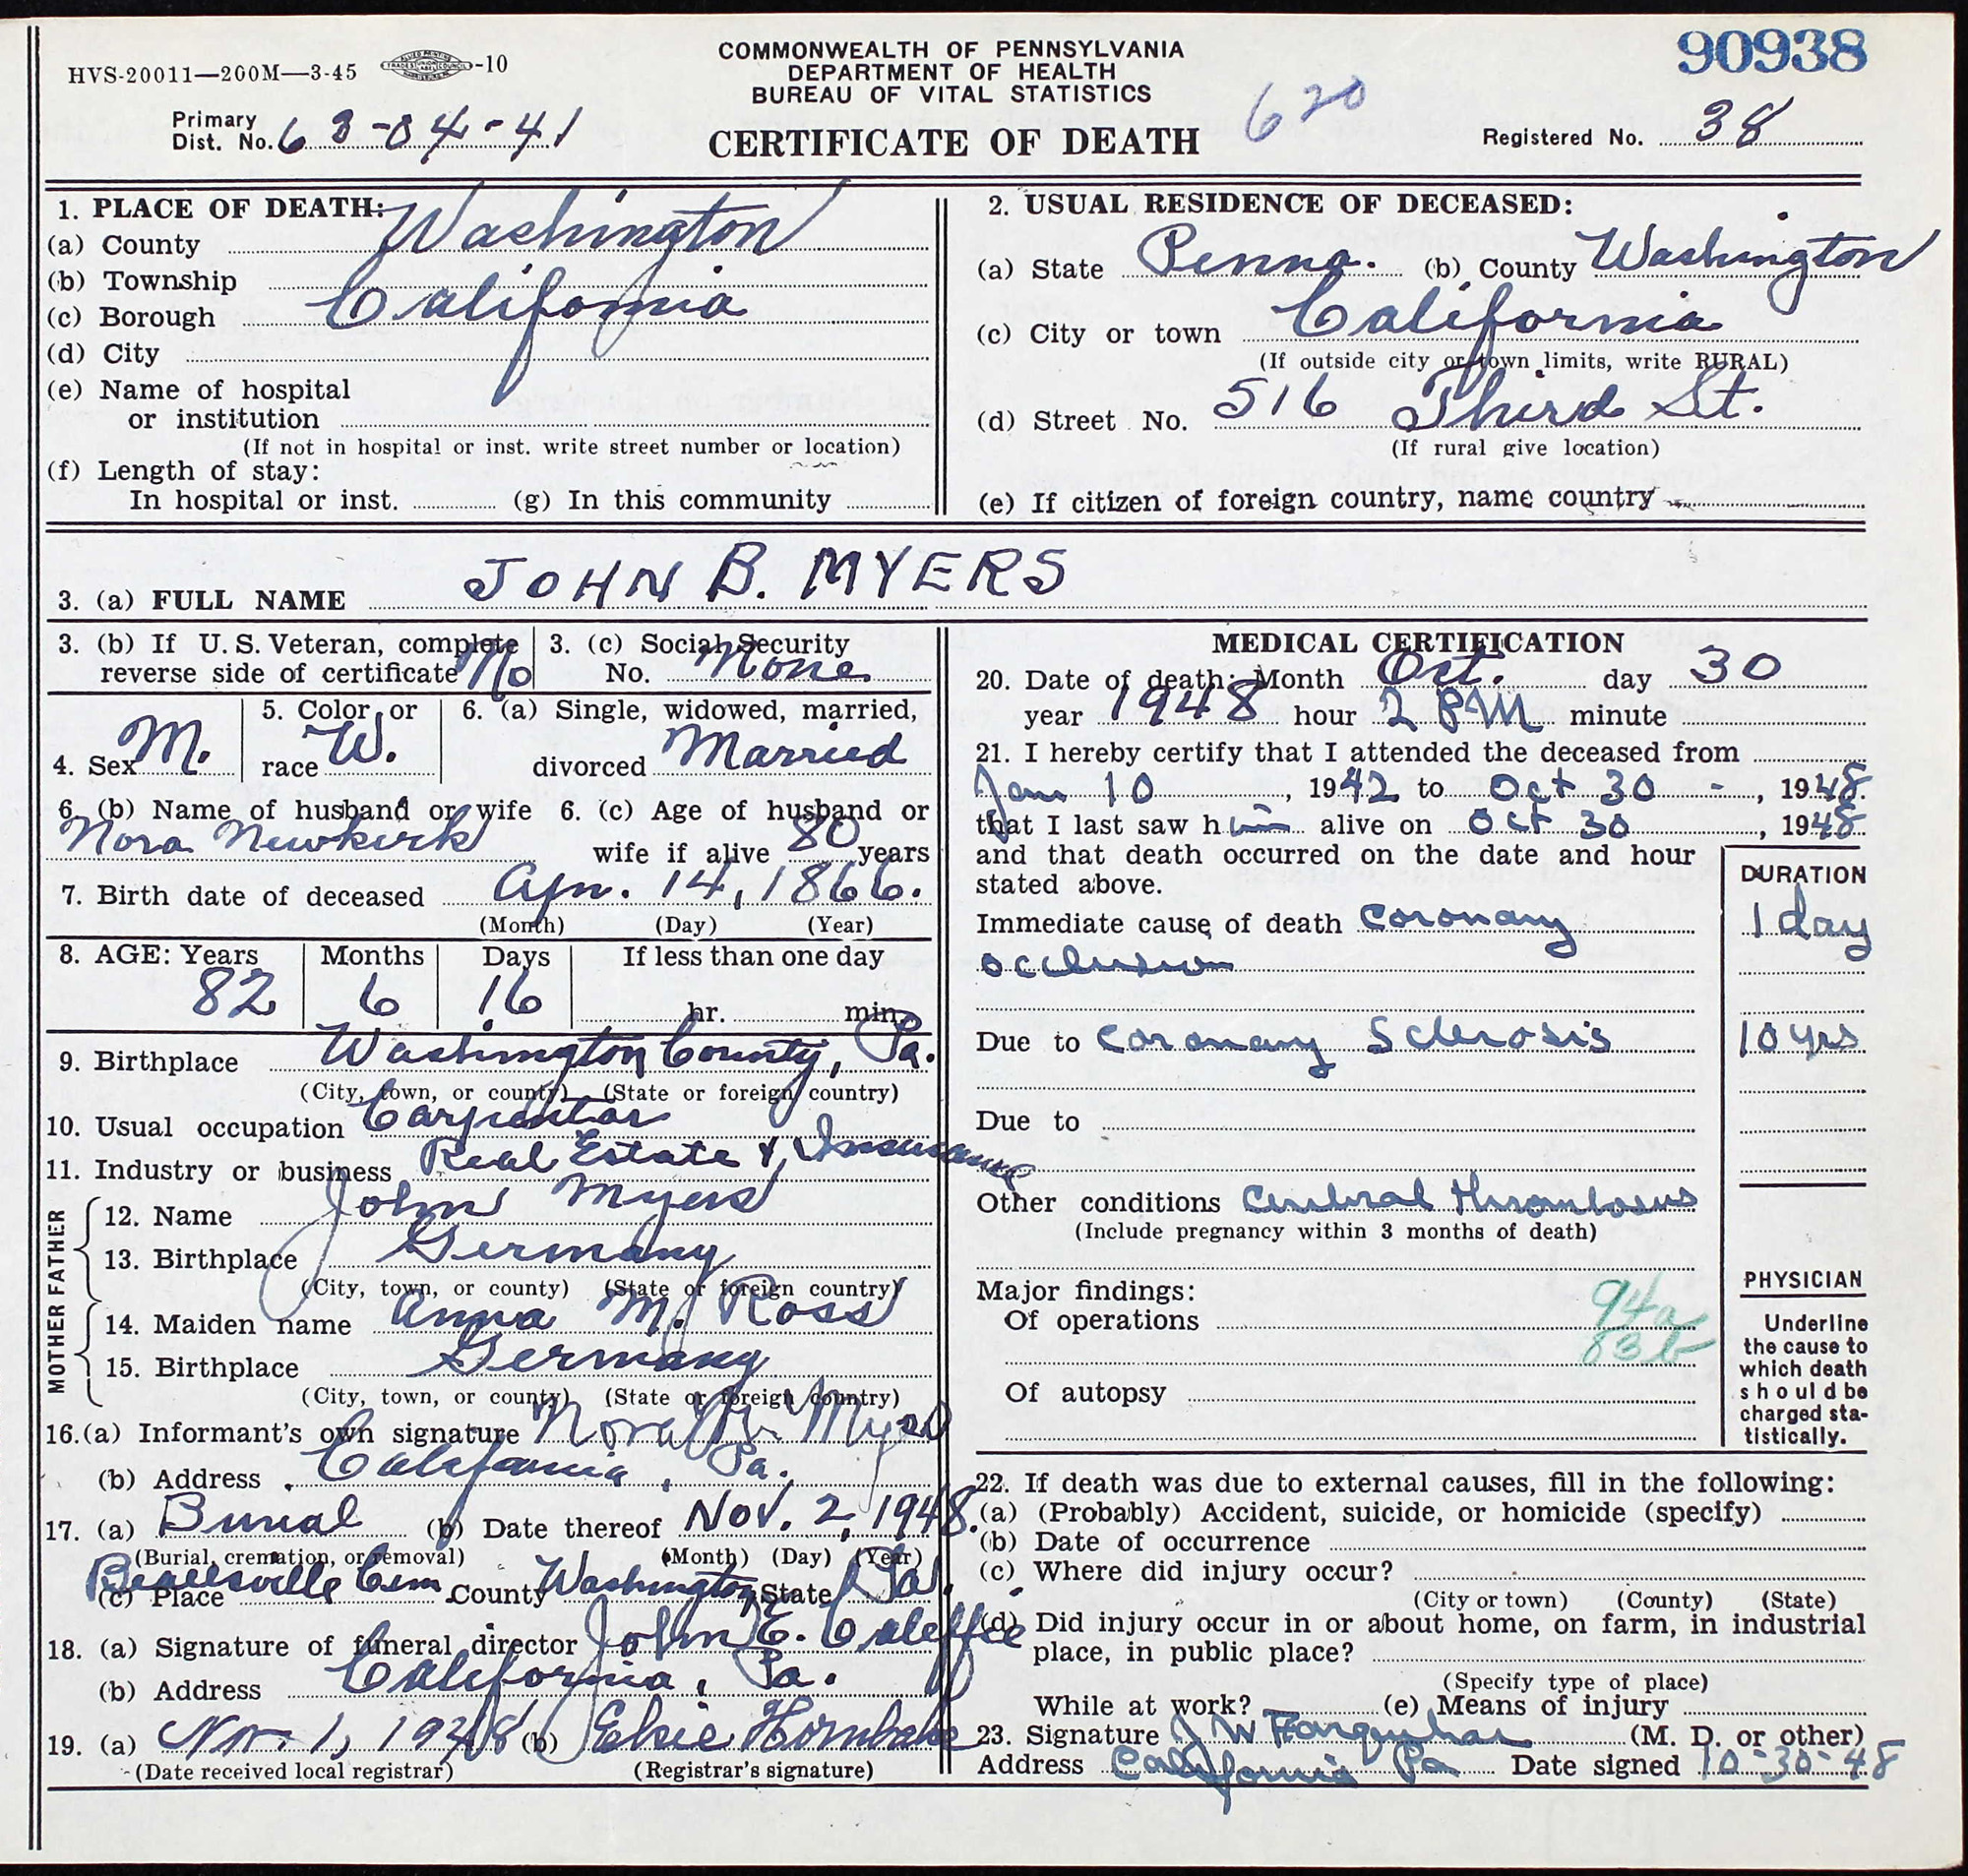 HVS-20011—200M—3-45 -10
COMMONWEALTH OF PENNSYLVANIA
DEPARTMENT OF HEALTH
BUREAU OF VITAL STATISTICS
CERTIFICATE OF DEATH
620
90938
Primary
Dist. No. 63-04-41
Registered No. 38
1. PLACE OF DEATH:
(a) County Washington
(b) Township
(c) Borough California
(d) City
(e) Name of hospital
or institution
(If not in hospital or inst. write street number or location)
(f) Length of stay:
In hospital or inst. (g) In this community
2. USUAL RESIDENCE OF DECEASED:
(a) State Penna. (b) County Washington
(c) City or town California
(If outside city or town limits, write RURAL)
(d) Street No. 516 Third St.
(If rural give location)
(e) If citizen of foreign country, name country
3. (a) FULL NAME JOHN B. MYERS
3. (b) If U. S. Veteran, complete
reverse side of certificate No
3. (c) Social Security
No. None
4. Sex M.
5. Color or
race W.
6. (a) Single, widowed, married,
divorced Married
6. (b) Name of husband or wife
Nora Newkirk
6. (c) Age of husband or
wife if alive 80 years
7. Birth date of deceased Apr. 14, 1866.
(Month) (Day) (Year)
8. AGE: Years Months Days If less than one day
82 6 16 hr. min.
9. Birthplace Washington County, Pa.
(City, town, or county) (State or foreign country)
10. Usual occupation Carpenter
11. Industry or business Real Estate & Insurance
FATHER
12. Name John Myers
13. Birthplace Germany
(City, town, or county) (State or foreign country)
MOTHER
14. Maiden name Anna M. Ross
15. Birthplace Germany
(City, town, or county) (State or foreign country)
16.(a) Informant's own signature Nora N. Myers
(b) Address California, Pa.
17. (a) Burial (b) Date thereof Nov. 2, 1948.
(Burial, cremation, or removal) (Month) (Day) (Year)
(c) Place Beallsville Cem County Washington State Pa.
18. (a) Signature of funeral director John E. Caleffie
(b) Address California, Pa.
19. (a) Nov. 1, 1948 (b) Elsie Hornbake
(Date received local registrar) (Registrar's signature)
MEDICAL CERTIFICATION
20. Date of death: Month Oct. day 30
year 1948 hour 2 PM minute
21. I hereby certify that I attended the deceased from
Jan 10, 1942 to Oct 30 - , 1948.
that I last saw him alive on Oct 30, 1948
and that death occurred on the date and hour
stated above.
DURATION
Immediate cause of death Coronary 1 day
occlusion
Due to Coronary Sclerosis 10 yrs
Due to
Other conditions Cerebral thrombosis
(Include pregnancy within 3 months of death)
Major findings:
Of operations
94a
83b
Of autopsy
PHYSICIAN
Underline
the cause to
which death
should be
charged sta-
tistically.
22. If death was due to external causes, fill in the following:
(a) (Probably) Accident, suicide, or homicide (specify)
(b) Date of occurrence
(c) Where did injury occur?
(City or town) (County) (State)
(d) Did injury occur in or about home, on farm, in industrial
place, in public place?
(Specify type of place)
While at work? (e) Means of injury
23. Signature J W Farquhar (M. D. or other)
Address California Pa Date signed 10-30-48